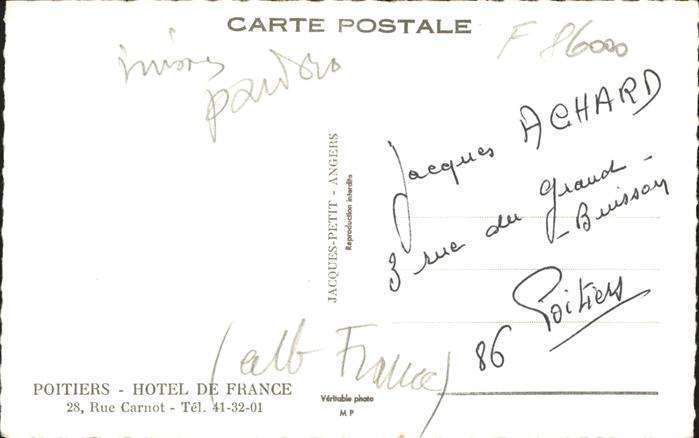 CARTE POSTALE
F 86000
JACQUES-PETIT - ANGERS
Reproduction interdite
Jacques ACHARD
3 rue du grand-
-Buisson
86 Poitiers
(alb France)
POITIERS - HOTEL DE FRANCE
28, Rue Carnot - Tél. 41-32-01
Véritable photo
M P